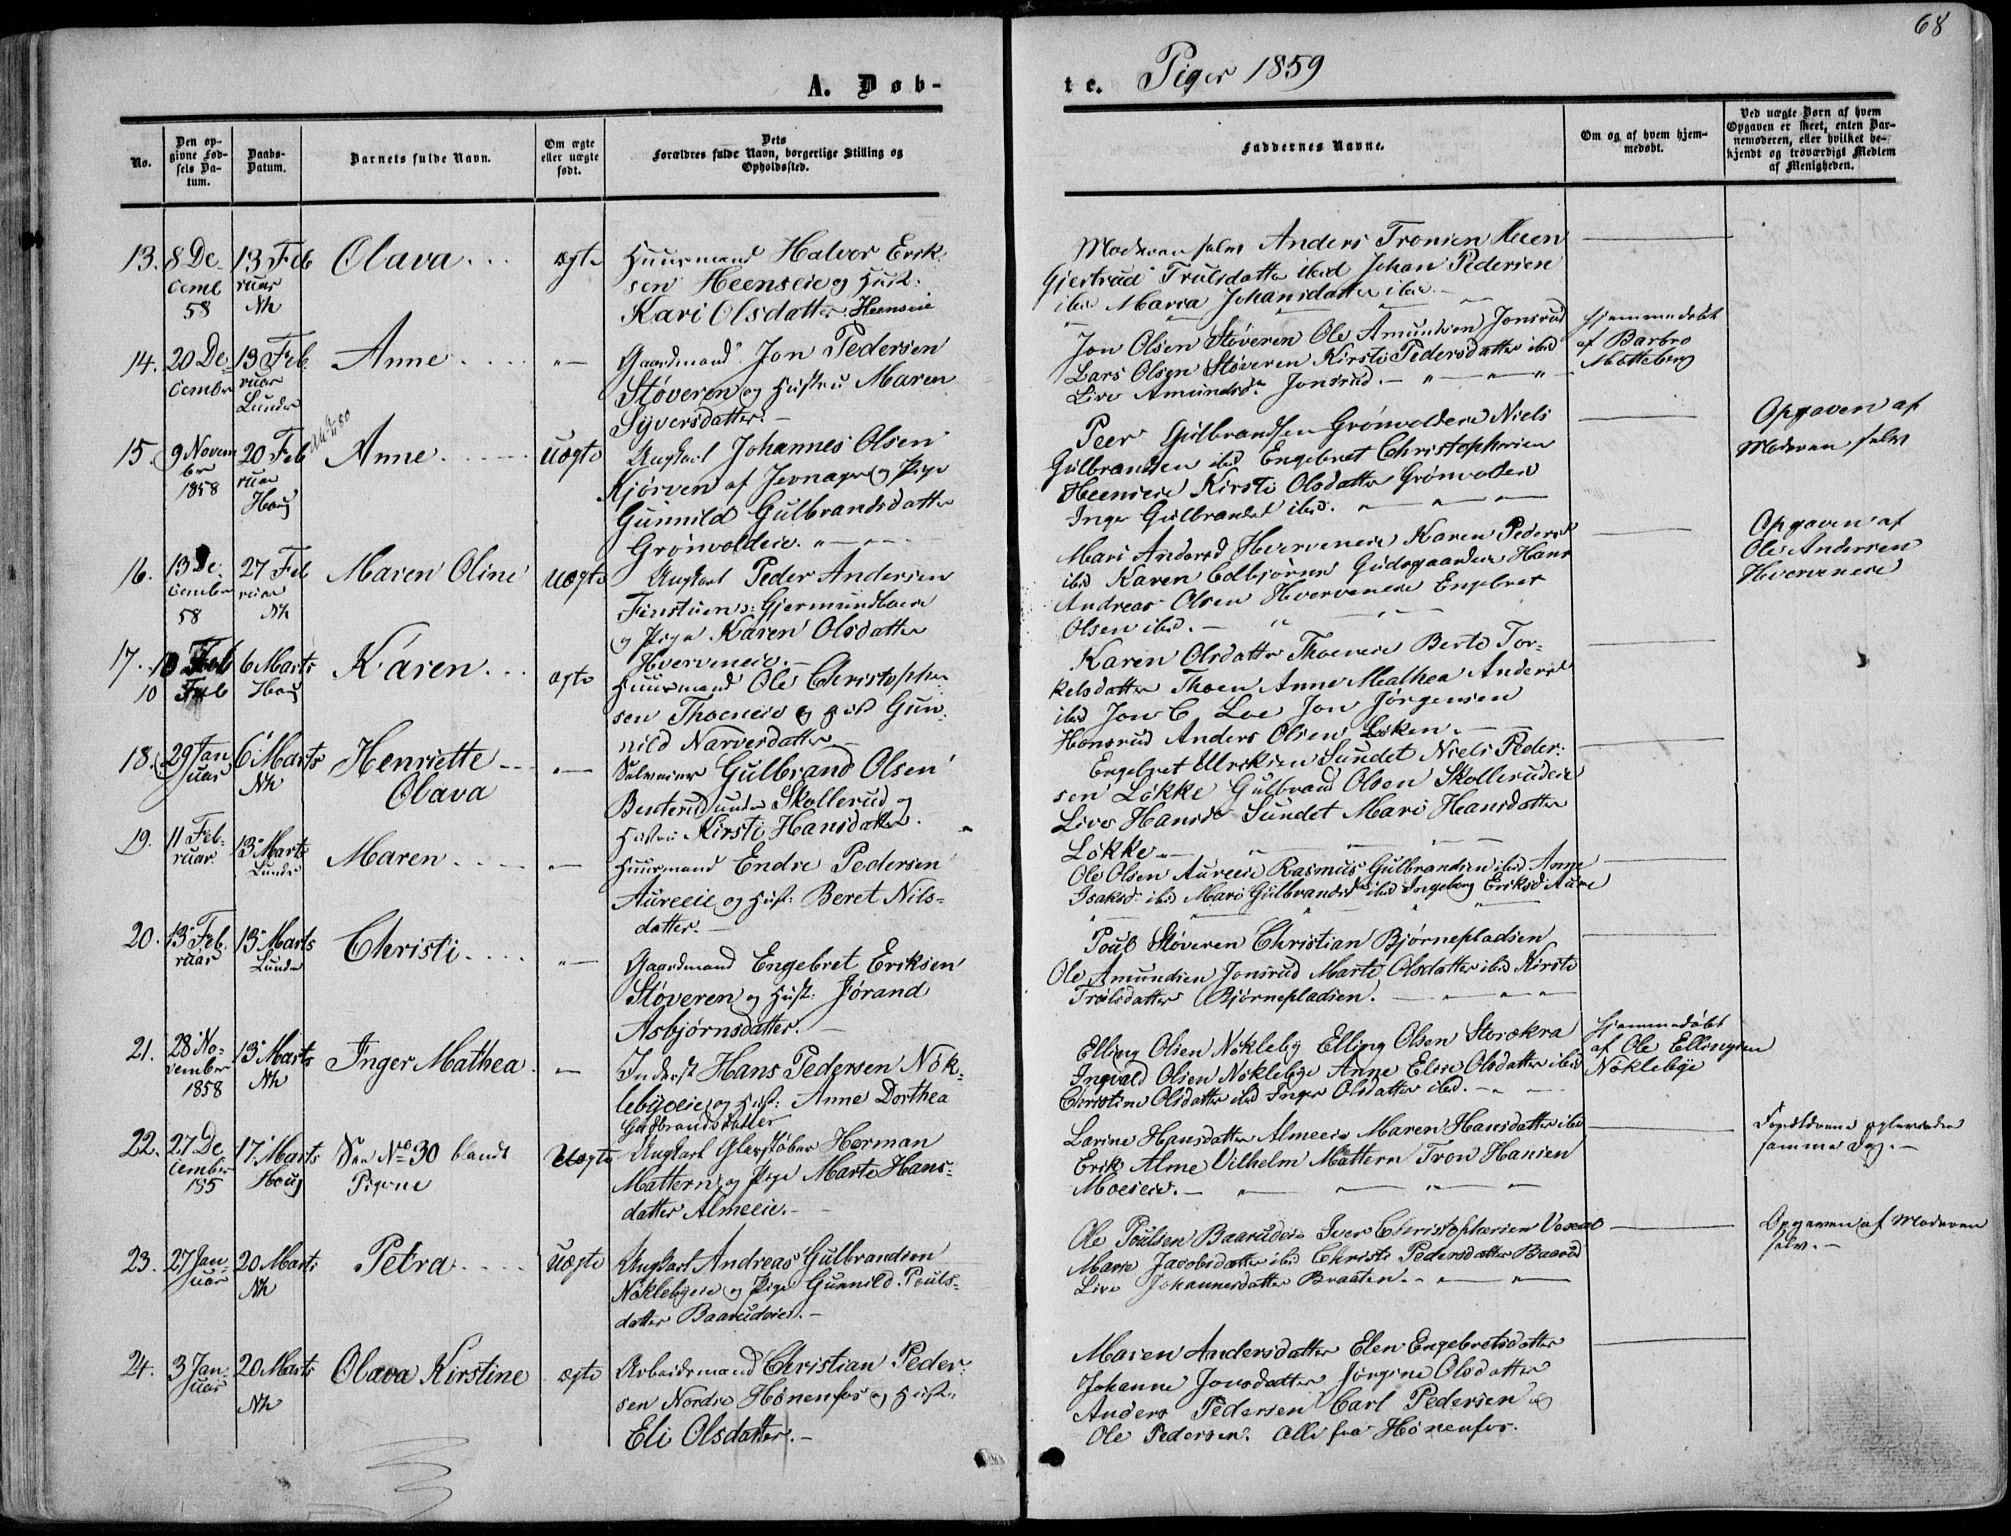 68
A. Døb-
te. Piger 1859
No.
Den op-
givne Fød-
sels Da-
tum.
Daabs-
Datum.
Barnets fulde Navn.
Om ægte
eller uægte
født.
Dets
Forældres fulde Navn, borgerlige Stilling og
Opholdssted.
Faddernes Navne.
Om og af hvem hjem-
medøbt.
Ved uægte Børn af hvem
Opgaven er skeet, enten Bar-
nemoderen, eller hvilket be-
kjendt og troværdigt Medlem
af Menigheden.
13. 8 De-
cemb
58
13 Feb
ruar
Nh
Olava
ægte
Huusmand Halvor Erik-
sen Heenseie og Hust:
Kari Olsdatter Heenseie
Moderen selv Anders Tronsen Heen
Gjertrud Trulsdatter ibid Johan Pedersen
ibid Maria Johansdatter ibid
14. 20 De-
cembr
13 Feb.
ruar
Lunder
Anne
"—
Gaardmand Jon Pedersen
Støveren og Hustru Maren
Syversdatter.—
Jon Olsen Støveren Ole Amundsen Jonsrud
Lars Olsen Støveren Kirsti Pedersdatter ibid
Live Amundsd. Jonsrud.—
Hjemmedøbt
af Barbro
15. 9 Novem
ber
1858
20 Feb
ruar
Houg
Anne
uægte
Ungkarl Johannes Olsen
Kjørven af Jevnager og Pige
Gunnild Gulbrandsdatter
Grønvoldeie.
Peer Gulbrandsen Grønvoldeie Niels
Gulbrandsen ibid Engebret Christophersen
Heenseie Kirsti Olsdatter Grønvolden
Inge Gulbrandsd ibid.
Opgaven af
Moderen selv
16. 13 De-
cember
58
27 Feb
ruar
Nh
Maren Oline
uægte
Ungkarl Peder Andersen
Finstuen Gjermundboeie
og Pige Karen Olsdatter
Hverveneie.—
Mari Andersd Hverveneie Karen Pedersd
ibid Karen Hans
Andreas Olsen Hverveneie Engebret
Olsen ibid.—
Opgaven af
Ole Andersen
Hverveneie
17. 10 Feb
10 Feb
6 Marts
Houg
Karen
ægte
Huusmand Ole Christopher
sen Thoeneie og Hust Gun-
nild Narvesdatter
Karen Olsdatter Thoeneie Berte Tor-
kelsdatter Thoen Anne Mathea Andersd
ibid Jon C. Loe Jon Jørgensen
Honsrud Anders Olsen Løken.—
18. 29 Jan
uar
6 Marts
Nh
Henriette
Olava
"—
Selveier Gulbrand Olsen
Benterud under Skollerud og
Hustru Kirsti Hansdatter.
Engebret Ulriksen Sundet Niels Peder-
sen Løkke Gulbrand Olsen Skollerudeie
Live Hansd Sundet Mari Hansdatter
Løkke
19. 11 Feb-
ruar
13 Marts
Lunder
Maren
—
Huusmand Endre Pedersen
Aureeie og Hust: Beret Nils-
datter.—
Ole Olsen Aureeie Rasmus Gulbrandsen ibid Anne
Isaksd ibid Mari Gulbrandsd ibid Ingeborg Eriksd Aure
20. 13 Feb.
ruar
13 Marts
Lunder
Christi
"—
Gaardmand Engebret Eriksen
Støveren og Hust: Jørand
Asbjørnsdatter.—
Poul Støveren Christian Bjørnepladsen
Ole Amundsen Jonsrud Marte Olsdatter ibid Kirsti
Trulsdatter Bjørnepladsen.
21. 28 No-
vember
1858
13 Marts
Nh
Inger Mathea
—
Inderst Hans Pedersen Nøk-
lebyeie og Hust: Anne Dorthea
Gulbrandsdatter
Elling Olsen Nøkleby Elling Olsen Storøkra
Ingvald Olsen Nøklebye Anne Elise Olsdatter ibid
Christine Olsdatter ibid Inger Olsdatter ibid.—
Hjemmedøbt
af Ole Ellingsen
Nøklebye
22. 27 De
cember
185
17 Marts
Houg
See No 30 blandt
Pigerne
Uægte
Ungkarl Glasstøber Herman
Mattern og Pige Marte Hans-
datter Almeeie.—
Larine Hansdatter Almeeie Maren Hansdatter ibid
Erik Alme Vilhelm Mattern Tron Hansen
Moeseie.—
Forældrene
samme Dag.—
23. 27 Jan-
uar
20 Marts
Nh
Petra
uægte
Ungkarl Andreas Gulbrandsen
Nøklebyeie og Pige Gunnild Pouls-
datter Baarudeie.—
Ole Poulsen Baarudeie Iver Christophersen
Marie Jacobsdatter ibid Christi Pedersdatter Baarud
Live Johannesdatter Braaten.
Opgaven af Moderen
selv.—
24. 3 Jan-
uar
20 Marts
Nh
Olava Kirstine
ægte
Arbeidsmand Christian Peder-
sen Nordre Hønenfos og Hust:
Eli Olsdatter.—
Maren Andersdatter Elen Engebretsdatter
Johanne Jonsdatter Jørgine Olsdatter
Anders Pedersen Carl Pedersen og
Ole Pedersen. Alle fra Hønenfos.